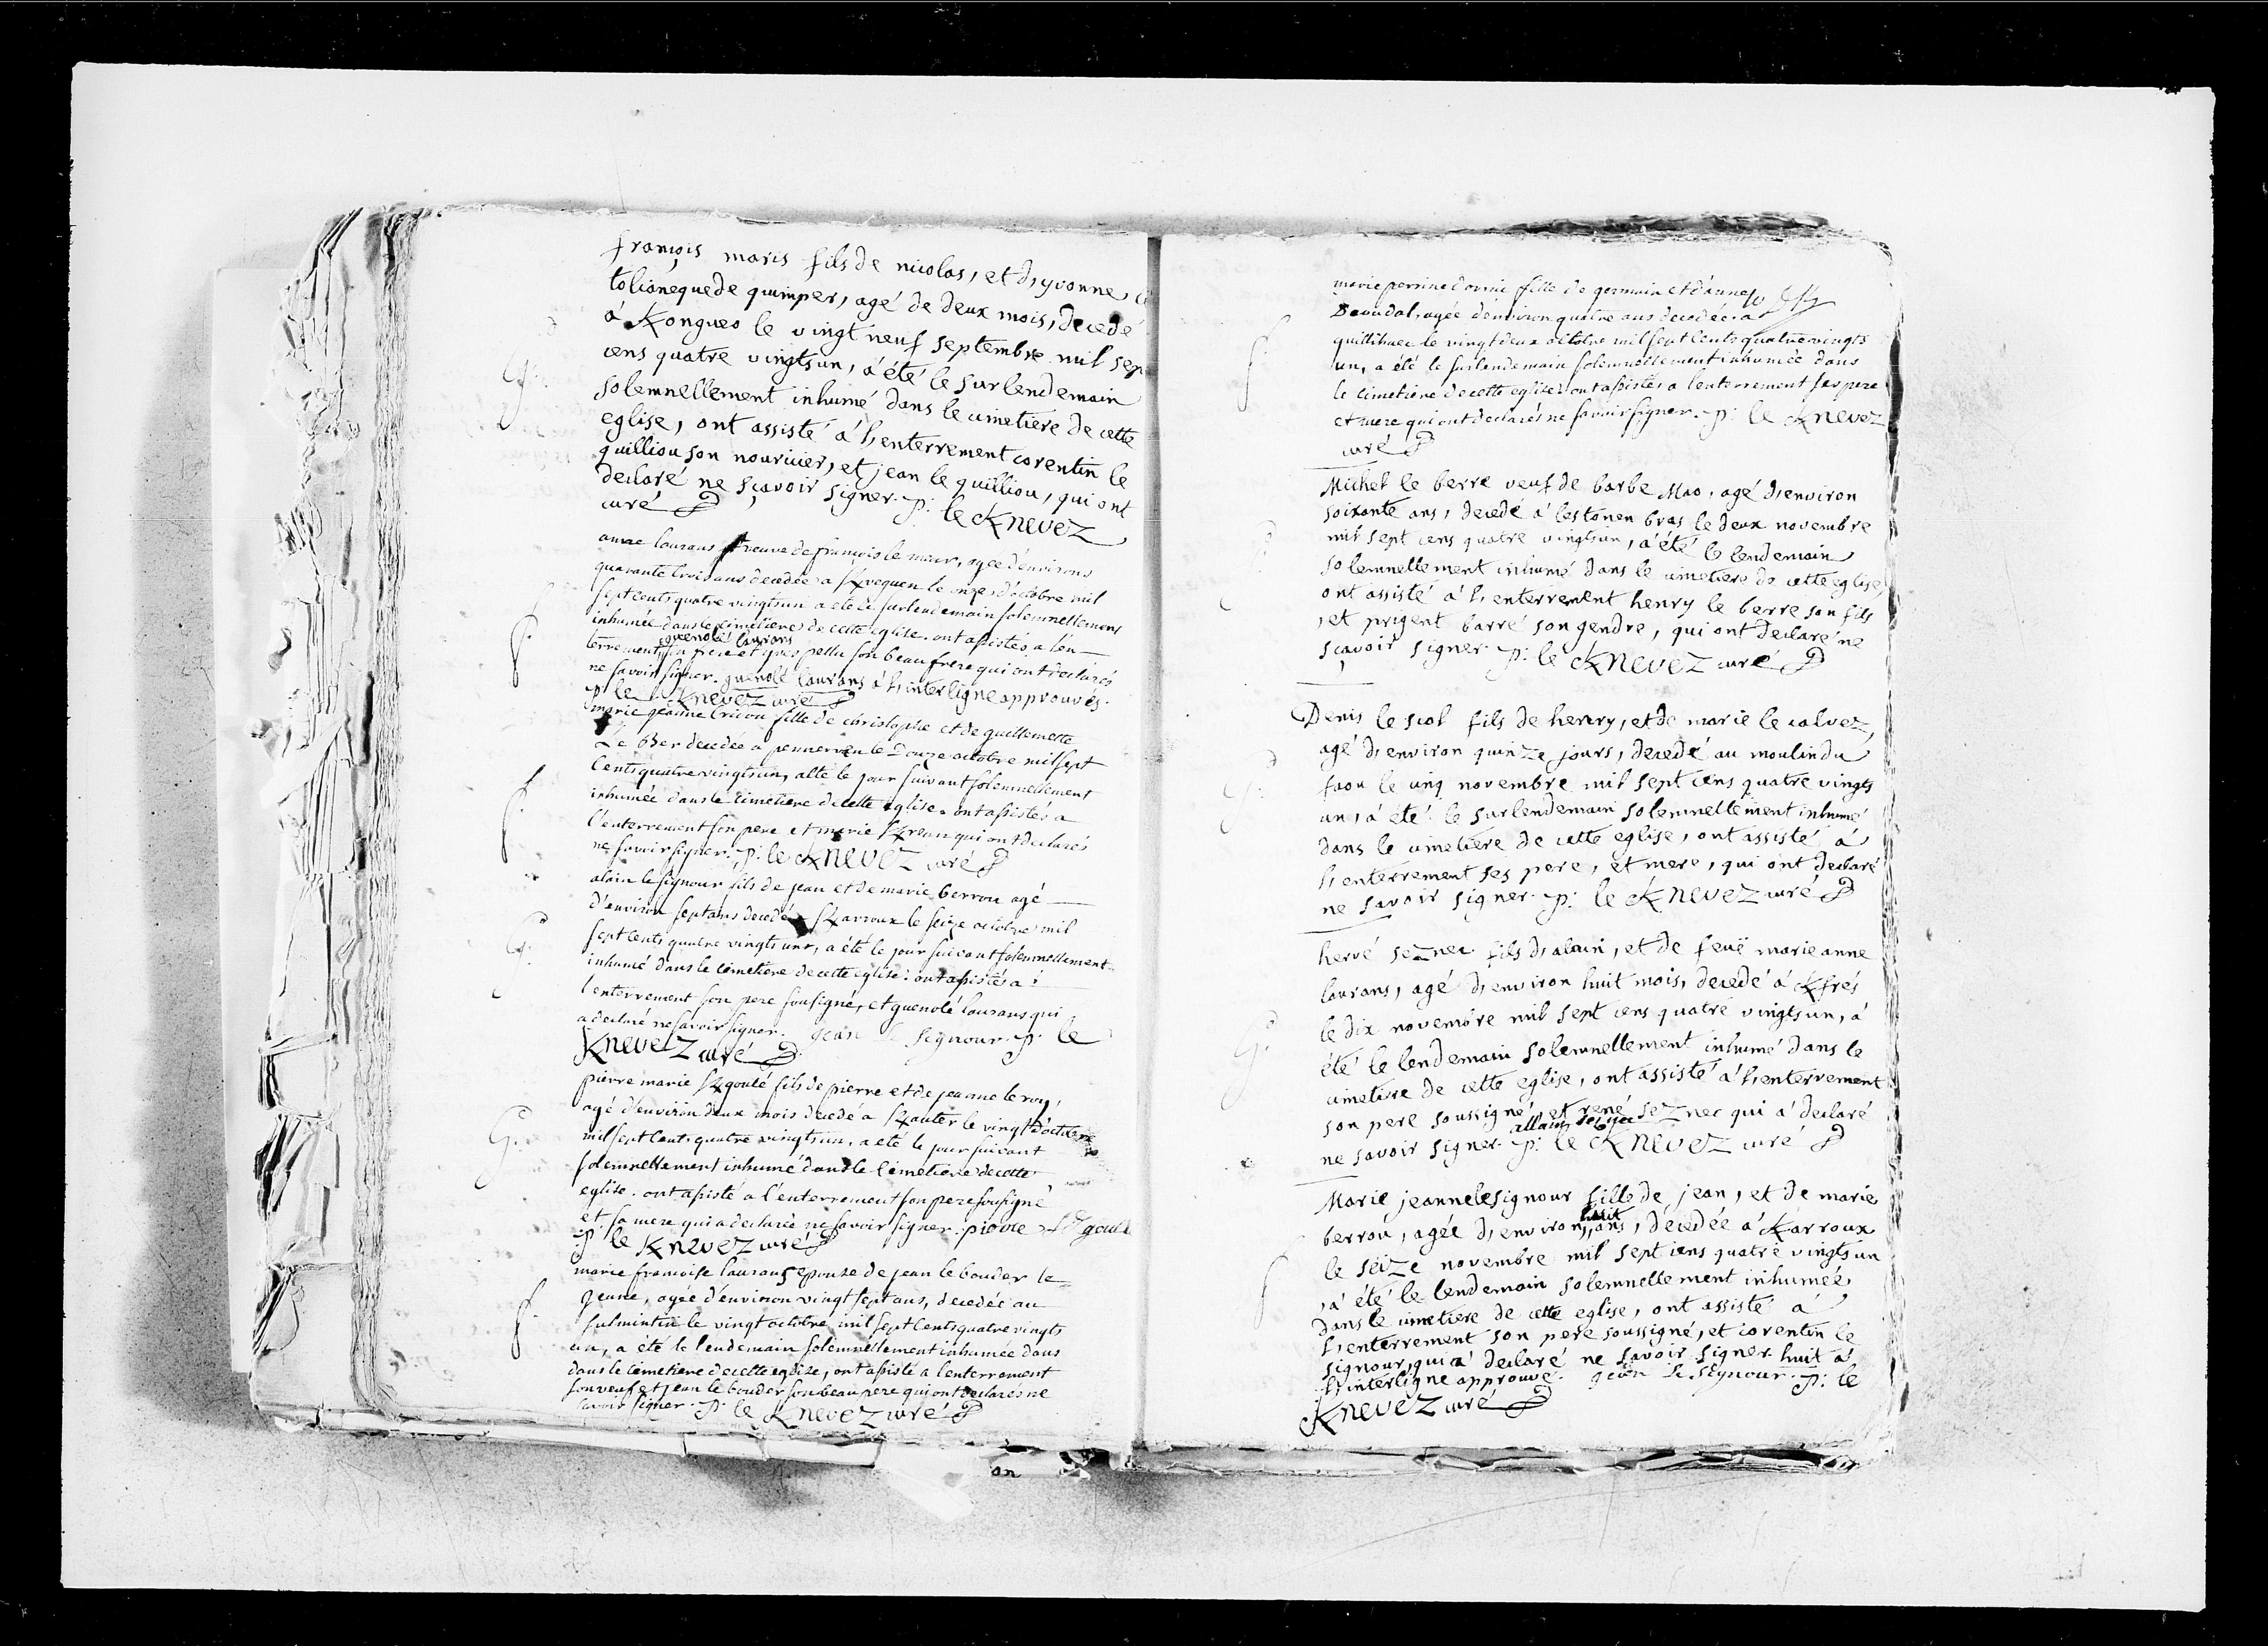 françois maris fils de nicolas, et d'yvonne
tolianeque de quimper, agé de deux mois, decedé
à Kongueo le vingt neuf septembre mil sep
cens quatre vingtsun, a été le surlendemain
G.
solemnellement inhumé dans le cimetiere de cette
eglise, ont assisté à l'enterrement corentin le
quilliou son nouricier, et jean le quilliou, qui ont
declaré ne sçavoir signer. p: le Knevez
curé
anne laurans veuve de françois le meur, agée d'environs
quarante trois ans decedée a Kveguen le onze d'octobre mil
sept cents quatre vingtsun a été le surlendemain solemnellement
f.
inhumée dans le cimetiere de cette eglise. ont assistés a l'en-
guenolé laurans
terrement son frere et yves pellu son beau frere qui ont declarés
ne savoir signer. guenolé laurans à l'interligne approuvés.
p: le Knevez curé
marie jeanne cricou fille de christophe et de guillemette
Le Ber decedée a pennerven le Douze octobre mil sept
cents quatre vingtsun, a été le jour suivant solemnellement
f.
inhumée dans le cimetiere de cette eglise. ont assistés a
l'enterrement son pere et marie Krean qui ont declarés
ne savoir signer. p: le Knevez curé
alain le signour fils de jean et de marie berrou agé
d'environ sept ans decedé a Karroux le seize octobre mil
sept cents quatre vingts unr, a été le jour suivant solemnellement
G.
inhumé dans le cimetiere de cette eglise. ont assistés a
l'enterrement son pere sousigné, et guenolé laurans qui
a declaré ne savoir signer. jean le signour. p: le
Knevez curé
pierre marie Kgoulé fils de pierre et de jeanne le roy,
agé d'environ deux mois decedé a Kauter le vingt d'octobre
G.
mil sept cents quatre vingtsun, a été le jour suivant
solemnellement inhumé dans le cimetiere de cette
eglise. ont assisté a l'enterrement son pere sousigné
et sa mere qui a declarée ne savoir signer. pierre Kgoulé
p: le Knevez curé
marie françoise laurans epouze de jean le bouder le
jeune, agée d'environ vingt sept ans, decedée au
f.
fulmintin le vingt octobre mil sept cents quatre vingts
un, a été le lendemain solemnellement inhumée dans
dans le cimetiere de cette eglize, ont assisté a l'enterrement
son veuf et jean le bouder son beau pere qui ont declarés ne
savoir signer. p: le Knevez curé
marie perrine fille de germain et d'anne
Daoudal, agée d'environ quatre ans decedée a
quillihuec le vingt deux octobre mil sept cents quatre vingts
f.
un, a été le surlendemain solemnellement inhumée dans
le cimetiere de cette eglise. ont assistés a l'enterrement ses pere
et mere qui ont declarés ne savoir signer. p: le Knevez
curé
Michel le berre veuf de barbe Mao, agé d'environ
soixante ans, decedé à lestonen bras le deux novembre
mil sept cens quatre vingtsun, a été le lendemain
solemnellement inhumé dans le cimetiere de cette eglise,
ont assisté à l'enterrement henry le berre son fils
, et prigent barré son gendre, qui ont declaré ne
sçavoir signer. p: le Knevez curé
Denis le scol fils de henry, et de marie le calvez,
agé d'environ quinze jours, decedé au moulin du
G.
faou le cinq novembre mil sept cens quatre vingts
un, a été le surlendemain solemnellement inhumé
dans le cimetiere de cette eglise, ont assisté à
l'enterrement ses pere, et mere, qui ont declaré
ne savoir signer. p: le Knevez curé
hervé seznec fils d'alain, et de feuë marie anne
laurans, agé d'environ huit mois, decedé à Kfrés
le dix novembre mil sept cens quatre vingtsun, à
G.
été le lendemain solemnellement inhumé dans le
cimetiere de cette eglise, ont assisté à l'enterrement
son pere soussigné, et rené seznec qui à declaré
allain seznec
ne savoir signer. p: le Knevez curé
Marie jeanne le signour fille de jean, et de marie
huit
berrou, agée d'environ ans, decedée à Karroux
le seize novembre mil sept cens quatre vingtsun
f
, à été le lendemain solemnellement inhumée
dans le cimetiere de cette eglise, ont assisté à
l'enterrement son pere soussigné, et corentin le
signour, qui a declaré ne savoir signer. huit à
l'interligne approuvé. jean le signour. p: le
Knevez curé